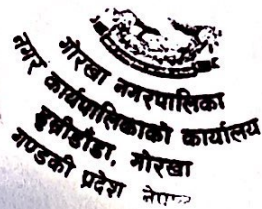 गोरखा नगरपालिका
नगर कार्यपालिकाको कार्यालय
गोरखा
गण्डकी प्रदेश नेपाल